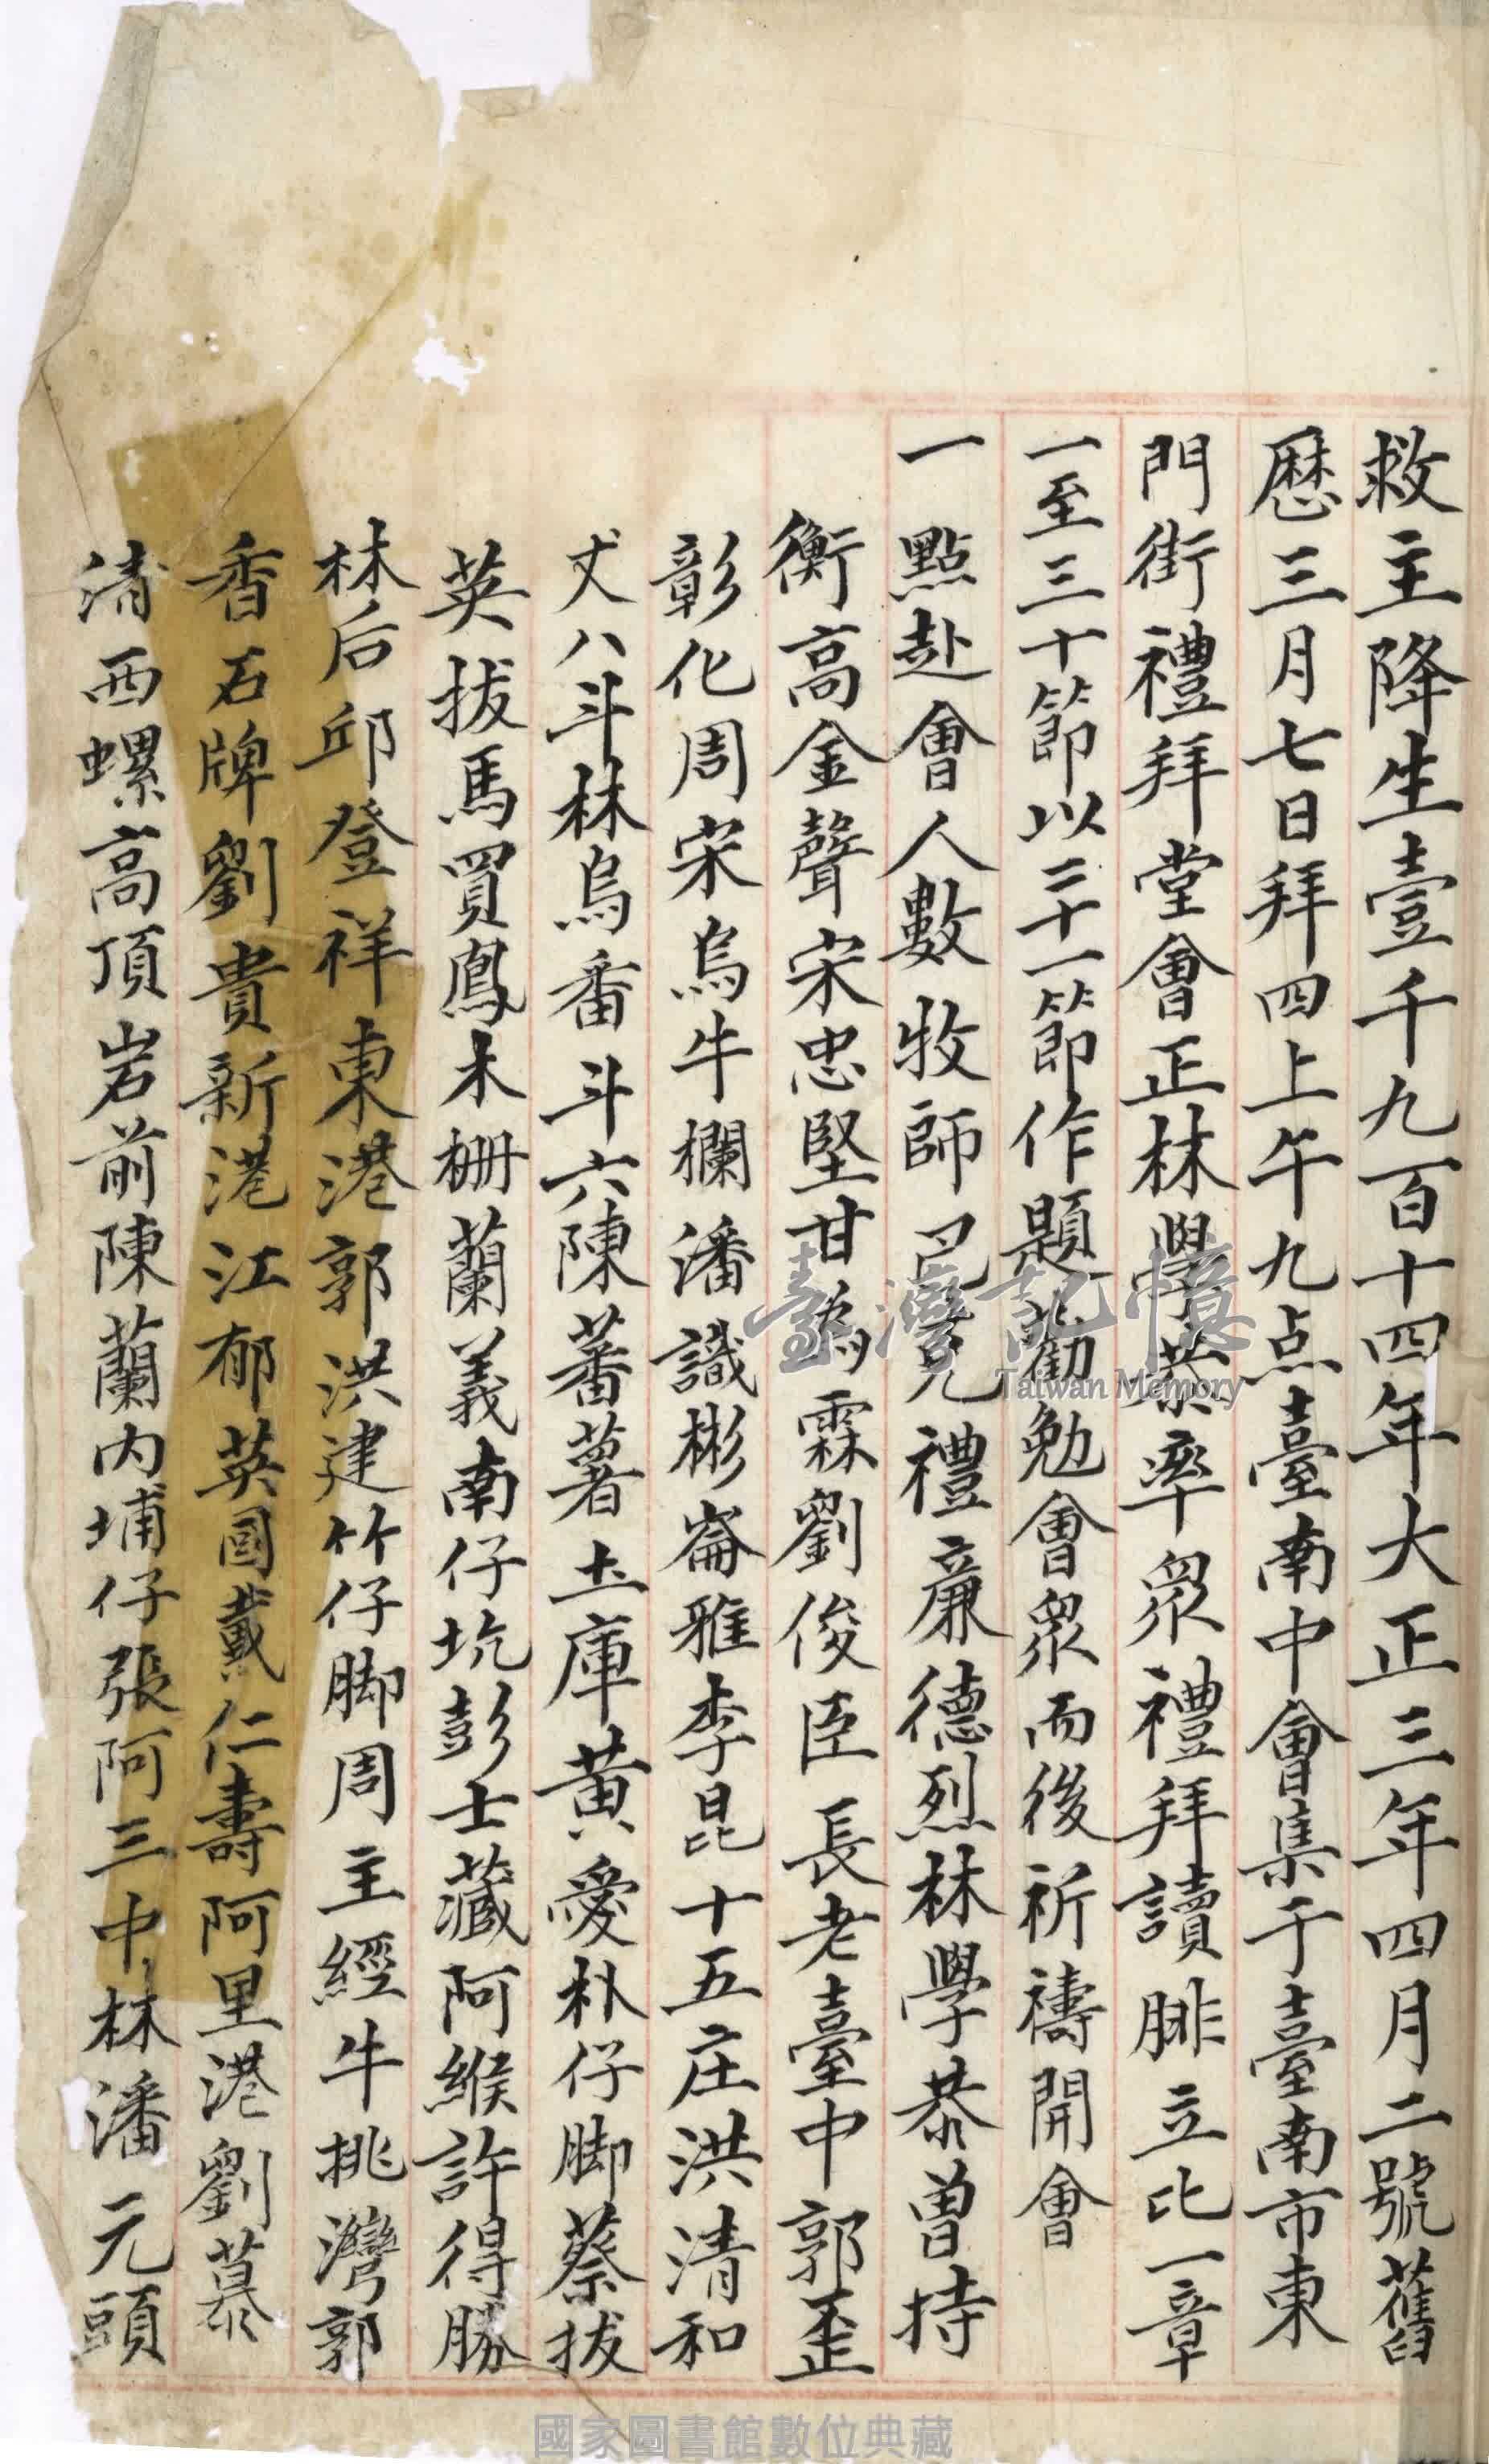 救主降生壹千九百十四年大正三年四月二號舊
曆三月七日拜四上午九点臺南中會集于臺南市東
門街禮拜堂會正林學恭率眾禮拜讀腓立比一章
一至三十節以二十一節作題勸勉會眾而後祈禱開會
一點赴會人數牧師 禮廉德烈林學恭曾持
衡高金聲宋忠堅甘為霖劉俊臣長老臺中郭歪
彰化周宋烏牛欄潘識彬崙雅李昆十五庄洪清和
丈八斗林烏番斗六陳蕃薯土庫黃愛朴仔脚蔡拔
英拔馬買鳳木柵蘭義南仔坑彭士藏阿緱許得勝
林后邱登祥東港郭洪建竹仔脚周主經牛挑灣郭
香石牌劉貴新港江郁英國戴仁壽阿里港劉慕
清西螺高頂岩前陳蘭內埔仔張阿三中林潘元頭
臺灣記憶
Taiwan Memory
國家圖書館數位典藏